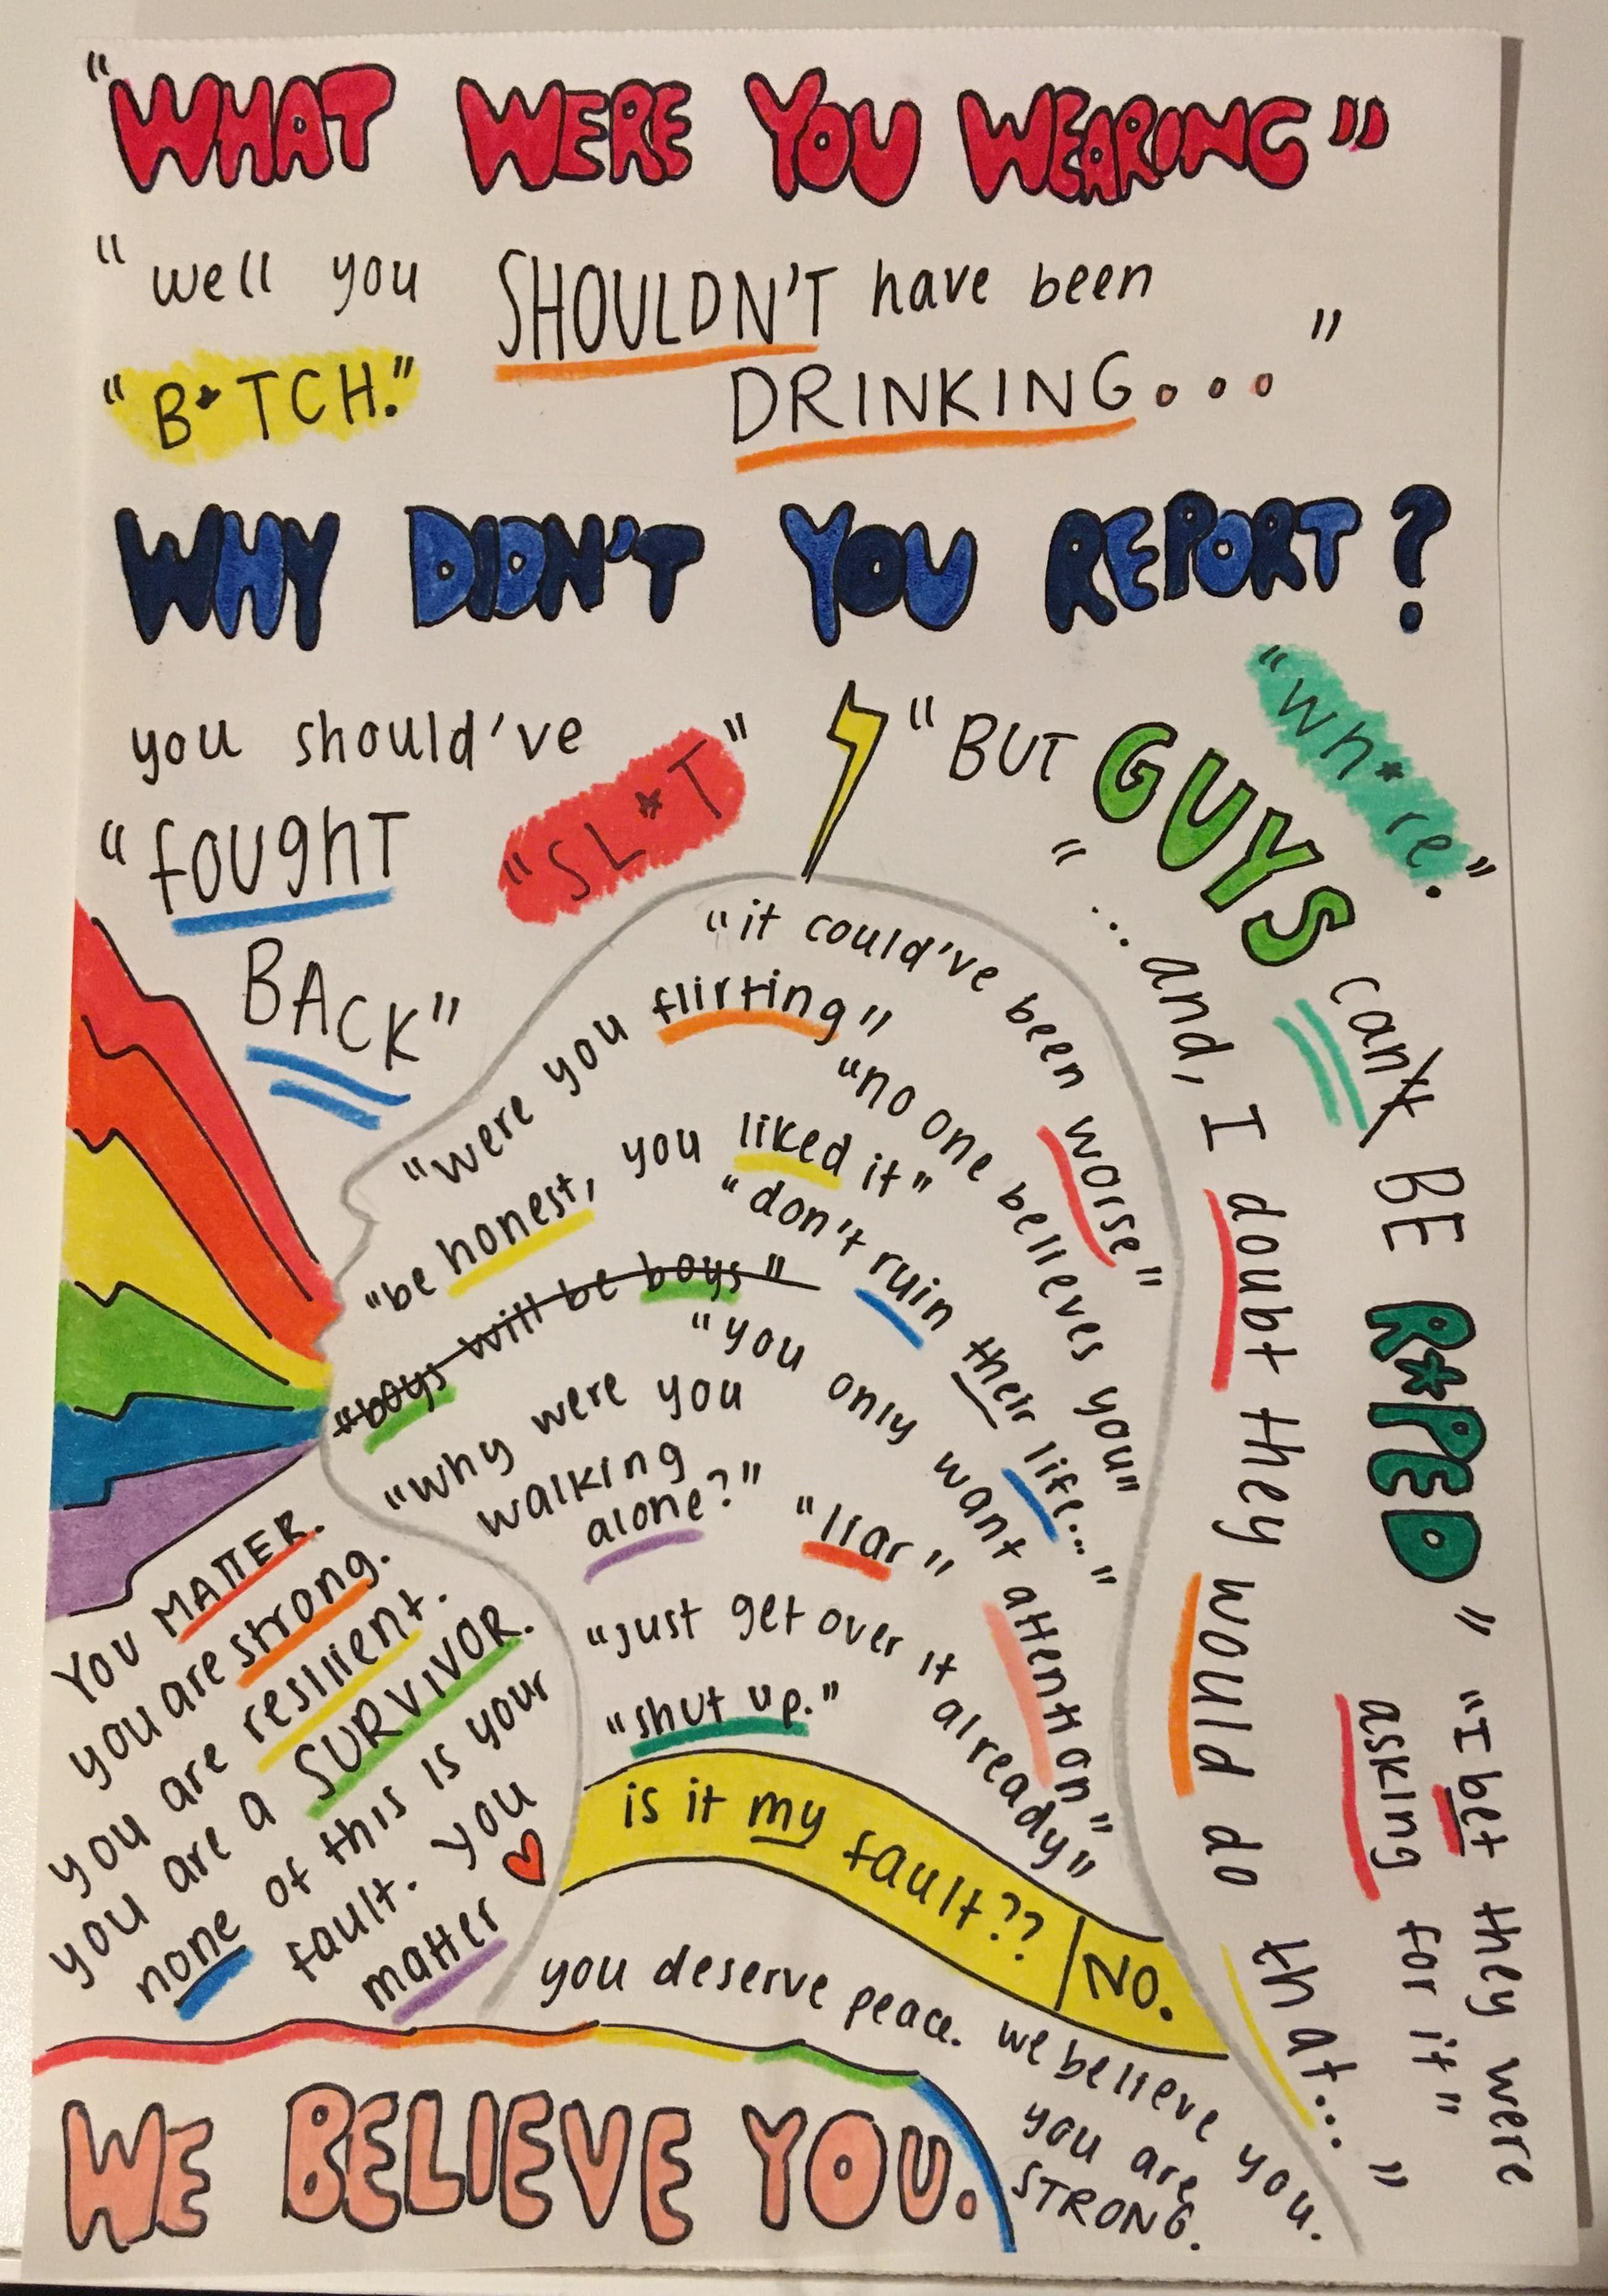 "WHAT WERE YOU WEARING"
"well you SHOULDN'T have been
DRINKING..."
"B*TCH."
WHY DIDN'T YOU REPORT?
you should've
"fought
BACK"
"SL*T"
"BUT GUYS can't BE R*PED"
"Wh*re."
"...and, I doubt they would do that..."
"I bet they were
asking for it"
"it could've been worse"
"were you flirting"
"no one believes you"
"be honest, you liked it"
"don't ruin their life..."
"boys will be boys"
"you only want attention"
"why were you
walking
alone?"
"liar"
"just get over it already"
"shut up."
is it my fault?? NO.
YOU MATTER.
you are strong.
you are resilient.
you are a SURVIVOR.
none of this is your
fault. you
matter
you deserve peace. we believe you.
you are
STRONG.
WE BELIEVE YOU.